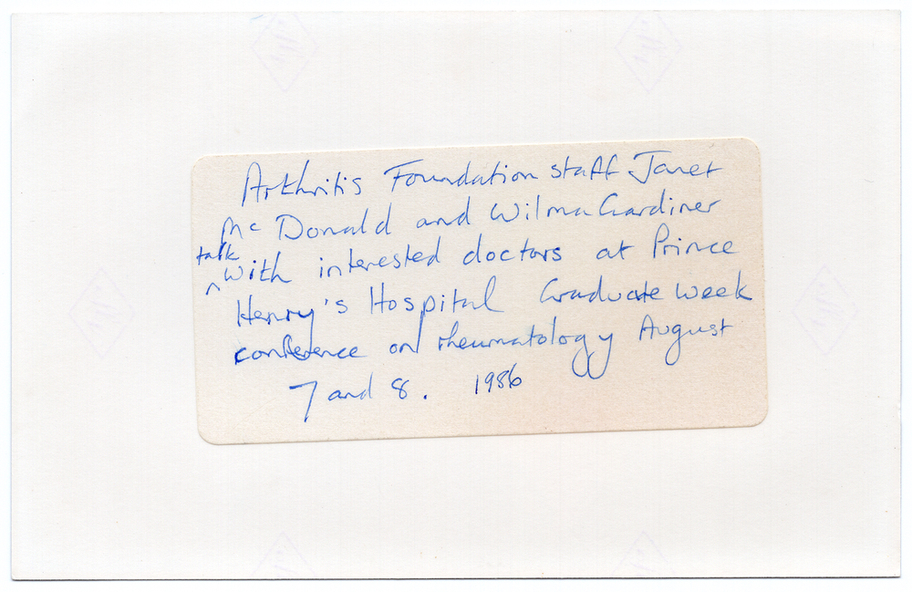 Arthritis Foundation staff Janet
McDonald and Wilma Gardiner
talk
^ with interested doctors at Prince
Henry's Hospital Graduate Week
conference on rheumatology August
7 and 8. 1986